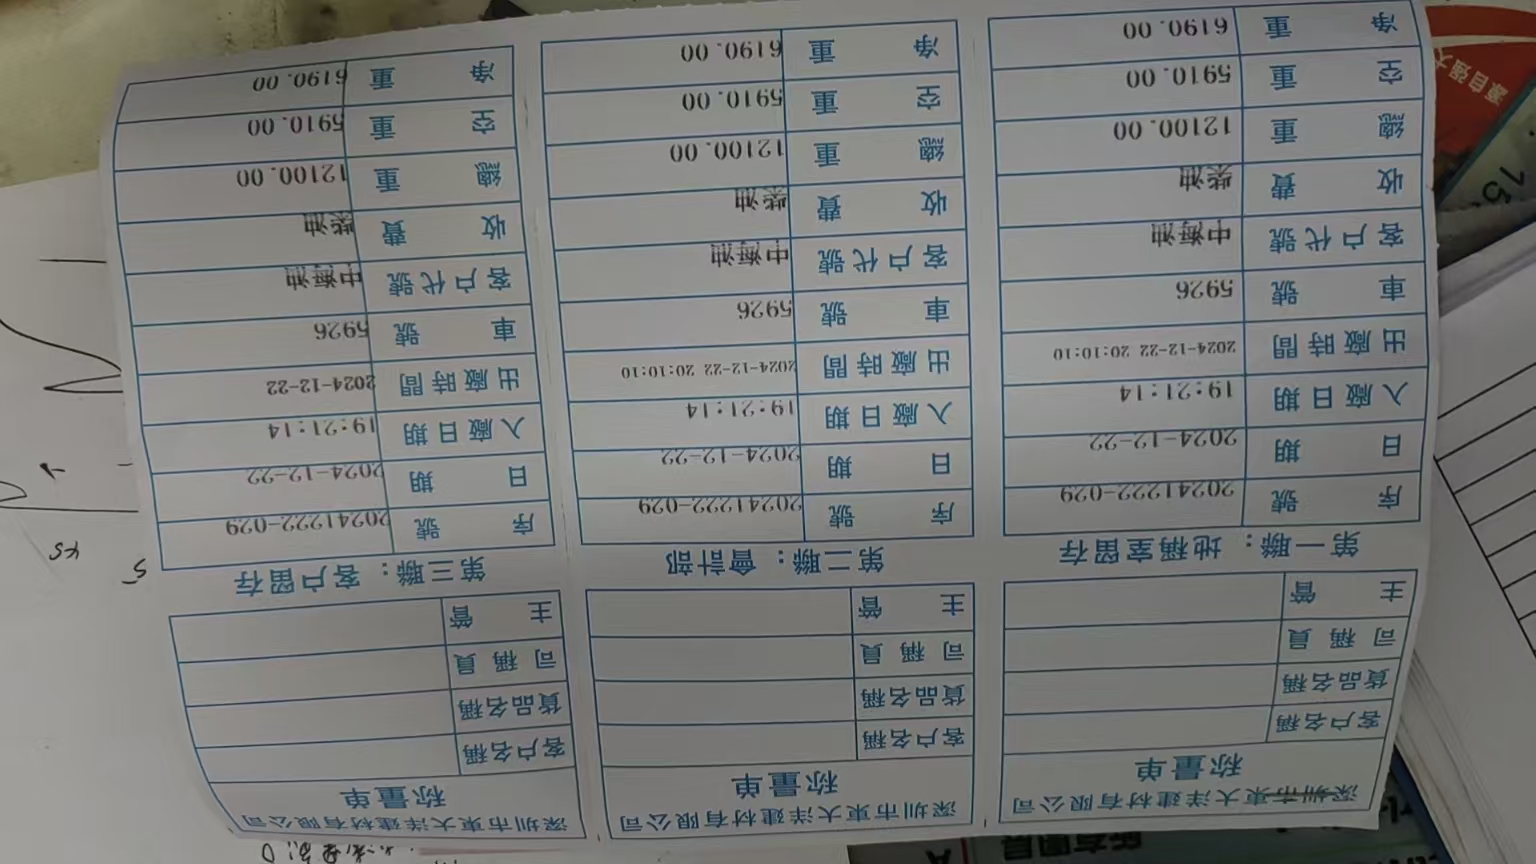 深圳市東大洋建材有限公司
称量单
客户名稱
貨品名稱
司稱員
主管
第一聯：地稱室留存
序號 20241222-029
日期 2024-12-22
入廠日期 19:21:14
出廠時間 2024-12-22 20:10:10
車號 5926
客户代號 中海油
收費 柴油
總重 12100.00
空重 5910.00
净重 6190.00
深圳市東大洋建材有限公司
称量单
客户名稱
貨品名稱
司稱員
主管
第二聯：會計部
序號 20241222-029
日期 2024-12-22
入廠日期 19:21:14
出廠時間 2024-12-22 20:10:10
車號 5926
客户代號 中海油
收費 柴油
總重 12100.00
空重 5910.00
净重 6190.00
深圳市東大洋建材有限公司
称量单
客户名稱
貨品名稱
司稱員
主管
第三聯：客户留存
序號 20241222-029
日期 2024-12-22
入廠日期 19:21:14
出廠時間 2024-12-22
車號 5926
客户代號 中海油
收費 柴油
總重 12100.00
空重 5910.00
净重 6190.00
源自强大